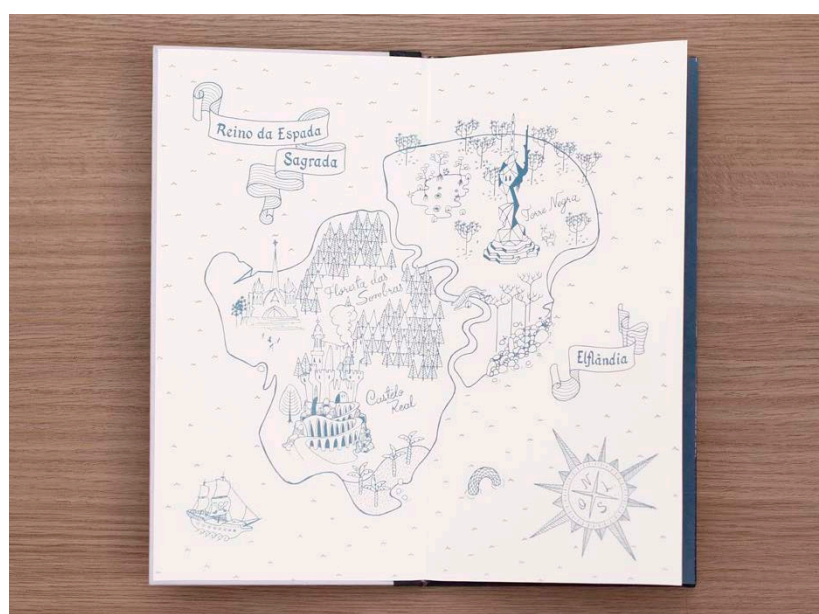 Reino da Espada
Sagrada
Torre Negra
Floresta das
Sombras
Castelo
Real
Elflândia
N
L
S
O